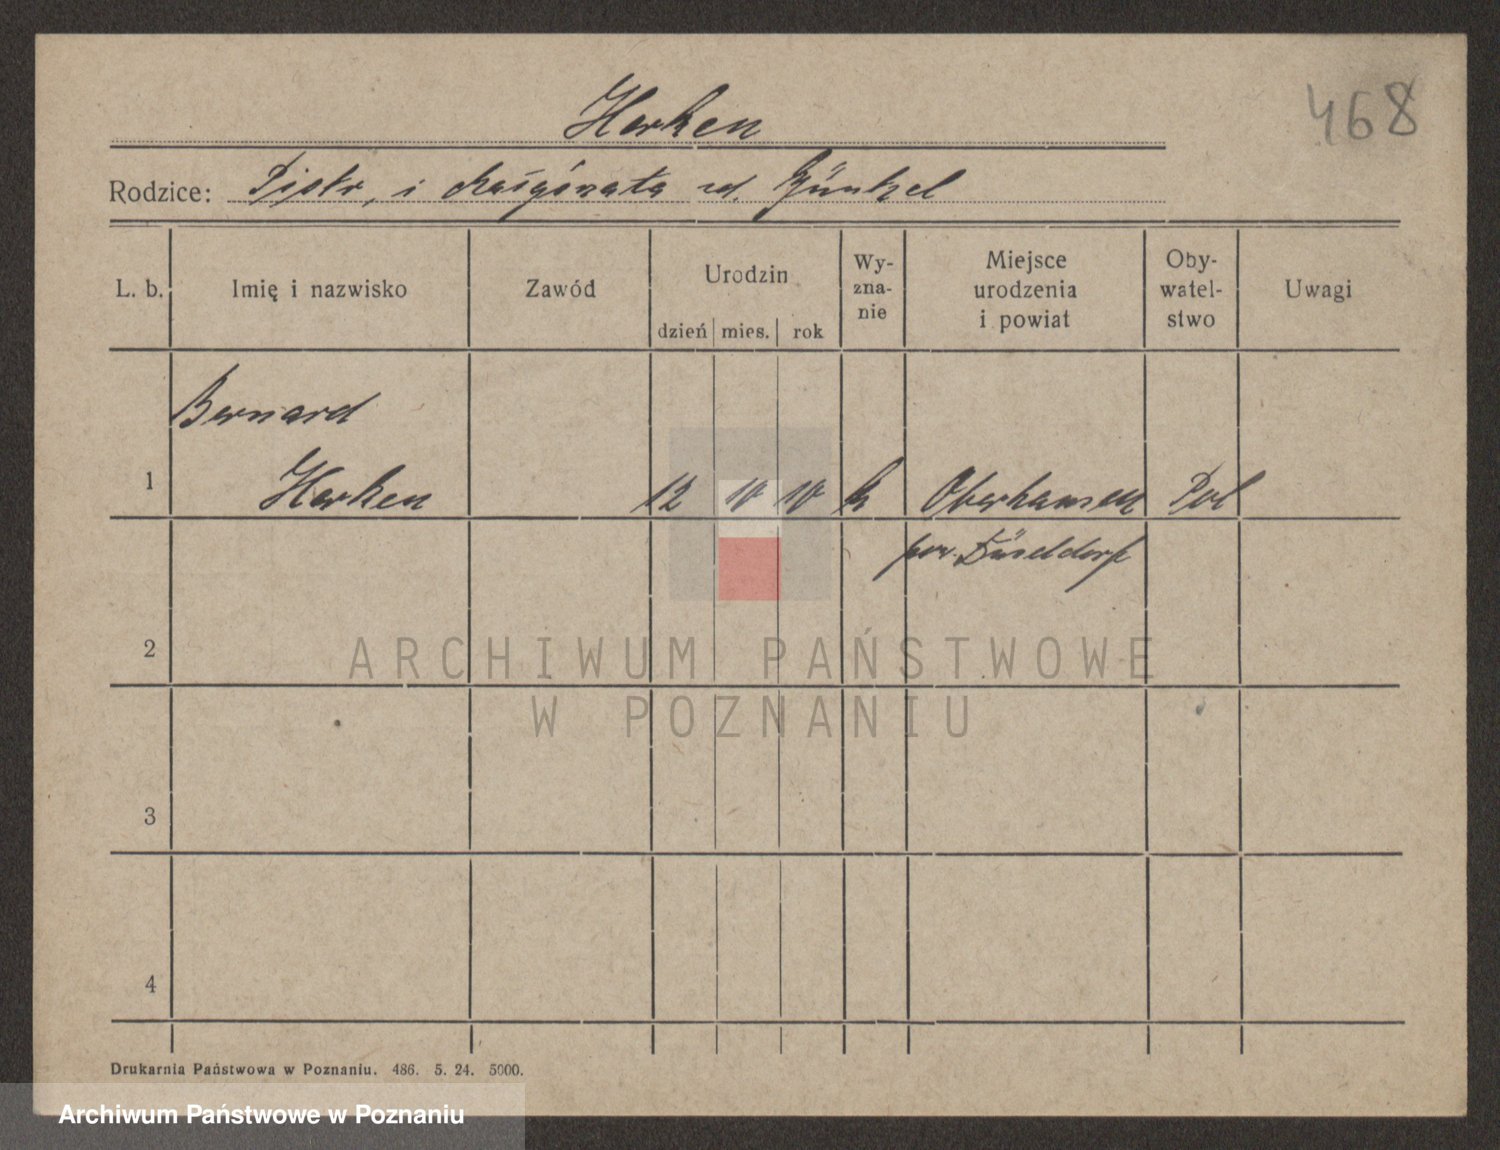 468
Herken
Rodzice: Piotr, i Małgorzata rd. Günkel
L. b. Imię i nazwisko Zawód Urodzin dzień mies. rok Wy-zna-nie Miejsce urodzenia i powiat Oby-watel-stwo Uwagi
Bernard
1 Herken 12 10 10 k Oberhausen Pol
pow. Düseldorf
2
ARCHIWUM PAŃSTWOWE
W POZNANIU
3
4
Drukarnia Państwowa w Poznaniu. 486. 5. 24. 5000.
Archiwum Państwowe w Poznaniu